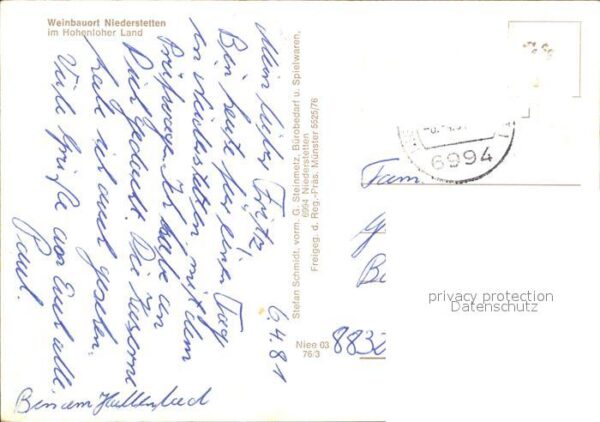 Weinbauort Niederstetten
im Hohenloher Land
6.4.81
Mein lieber Fritz,
Bin heute für einen Tag
in Niederstetten mit dem
Ich habe an
Dich gedacht. Die Kaserne
habe ich auch gesehen.
Viele Grüße an Euch alle
Paul.
Bin am Hallenbad
Stefan Schmidt, vorm. G. Steinmetz, Bürobedarf u. Spielwaren,
6994 Niederstetten
Freigeg. d. Reg.-Präs. Münster 5525/76
Niee 03
76·3
6994
Fam.
883
privacy protection
Datenschutz